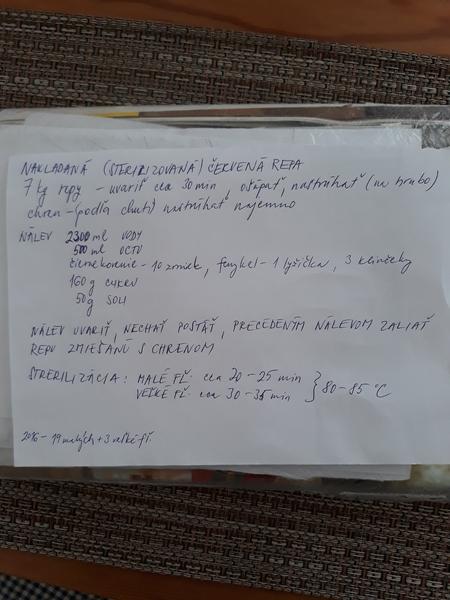 NAKLADANÁ (STERILIZOVANÁ) ČERVENÁ REPA
7 kg repy - uvariť cca 30 min, ošúpať, nastrúhať (na hrubo)
chren - (podľa chuti) nastrúhať najemno
NÁLEV 2300 ml VODY
500 ml OCTU
čierne korenie - 10 zrniek, fenykel - 1 lyžička, 3 klinčeky
160 g CUKRU
50 g SOLI
NÁLEV UVARIŤ, NECHAŤ POSTÁŤ, PRECEDENÝM NÁLEVOM ZALIAŤ
REPU ZMIEŠANÚ S CHRENOM
STERILIZÁCIA: MALÉ FĽ. cca 20-25 min
VEĽKÉ FĽ. cca 30-35 min } 80-85 °C
2016 - 19 malých + 3 veľké fľ.